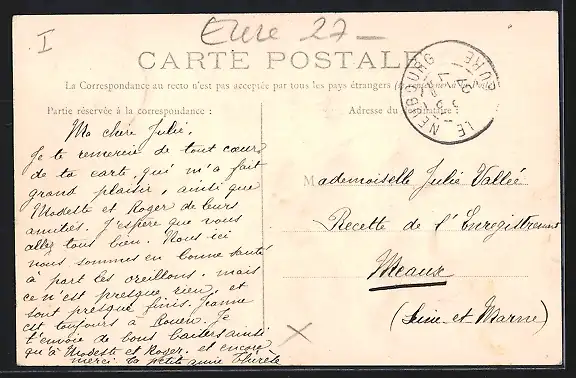 I
Eure 27 -
CARTE POSTALE
La Correspondance au recto n'est pas acceptée par tous les pays étrangers
Partie réservée à la correspondance :
Adresse du
LE NEUBOURG
EURE
Ma chère Julie,
Je te remercie de tout cœur
de ta carte, qui m'a fait
grand plaisir, ainsi que
Modeste et Roger de leurs
amitiés. J'espère que vous
allez tous bien. Nous ici
nous sommes en bonne santé
à part les oreillons. mais
ce n'est presque rien, et
sont presque finis. Jeanne
est toujours à Rouen. Je
t'envoie de bons baisers ainsi
qu'à Modeste et Roger. et encore
merci. ta petite amie
Mademoiselle Julie Vallée
Recette de l'Enregistrement
Meaux
(Seine-et-Marne)